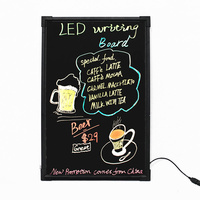 LED writing
Board
special food
CAFFÈ LATTE
CAFFÈ MOCHA
CARAMEL MACCHIATO
VANILLA LATTE
MILK WITH TEA
Beer
$29
Great
New Promotion comes from China